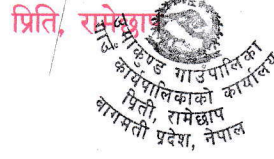 प्रिति, रामेछाप
उमाकुण्ड गाउँपालिका
गाउँ कार्यपालिकाको कार्यालय
प्रिती, रामेछाप
बागमती प्रदेश, नेपाल